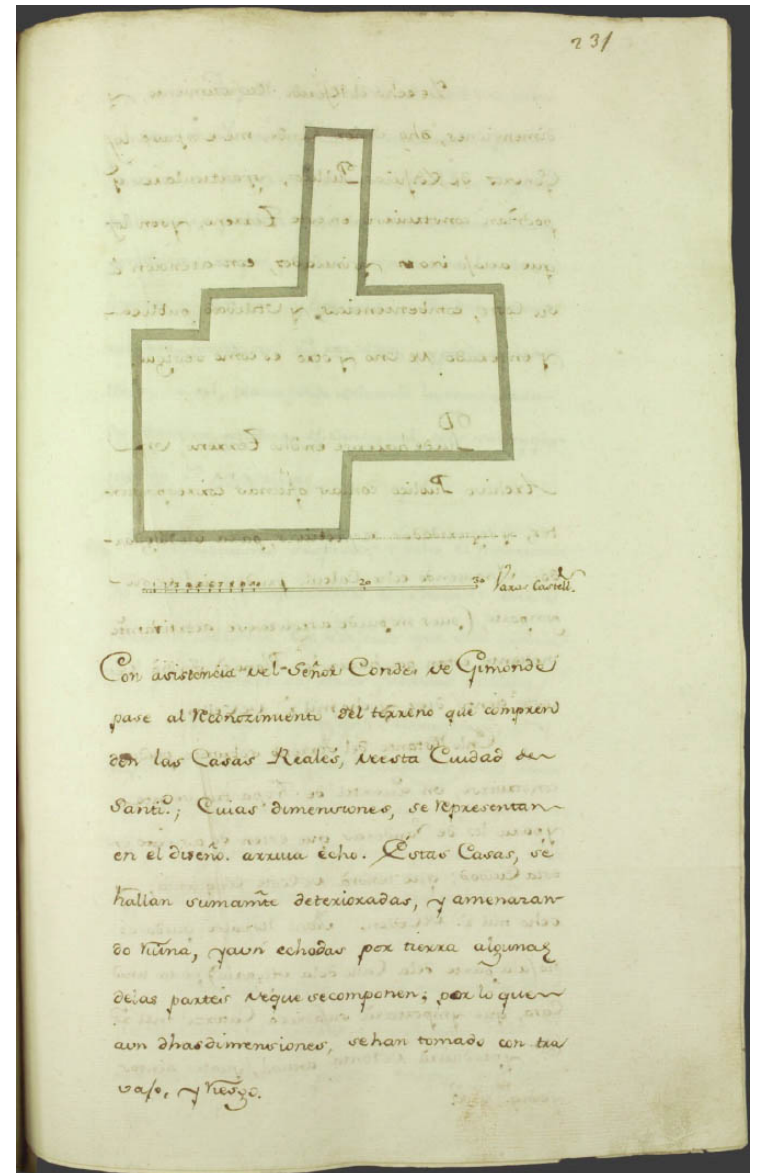 231
1 2 3 4 5 6 7 8 9 10 20 30 Varas Castell.
Con asistencia del Señor Conde, de Gimonde
pase al reconozimiento del terreno que compren
den las Casas Reales, de esta Ciudad de
Santi.º; Cuias dimensiones, se representan
en el diseño. arriva echo. Estas Casas, se
hallan sumamte deterioradas, y amenazan-
do ruina, y aun echadas por tierra algunas
de las partes de que se componen; por lo que
aun dhas dimensiones, se han tomado con tra
vajo, y riesgo.